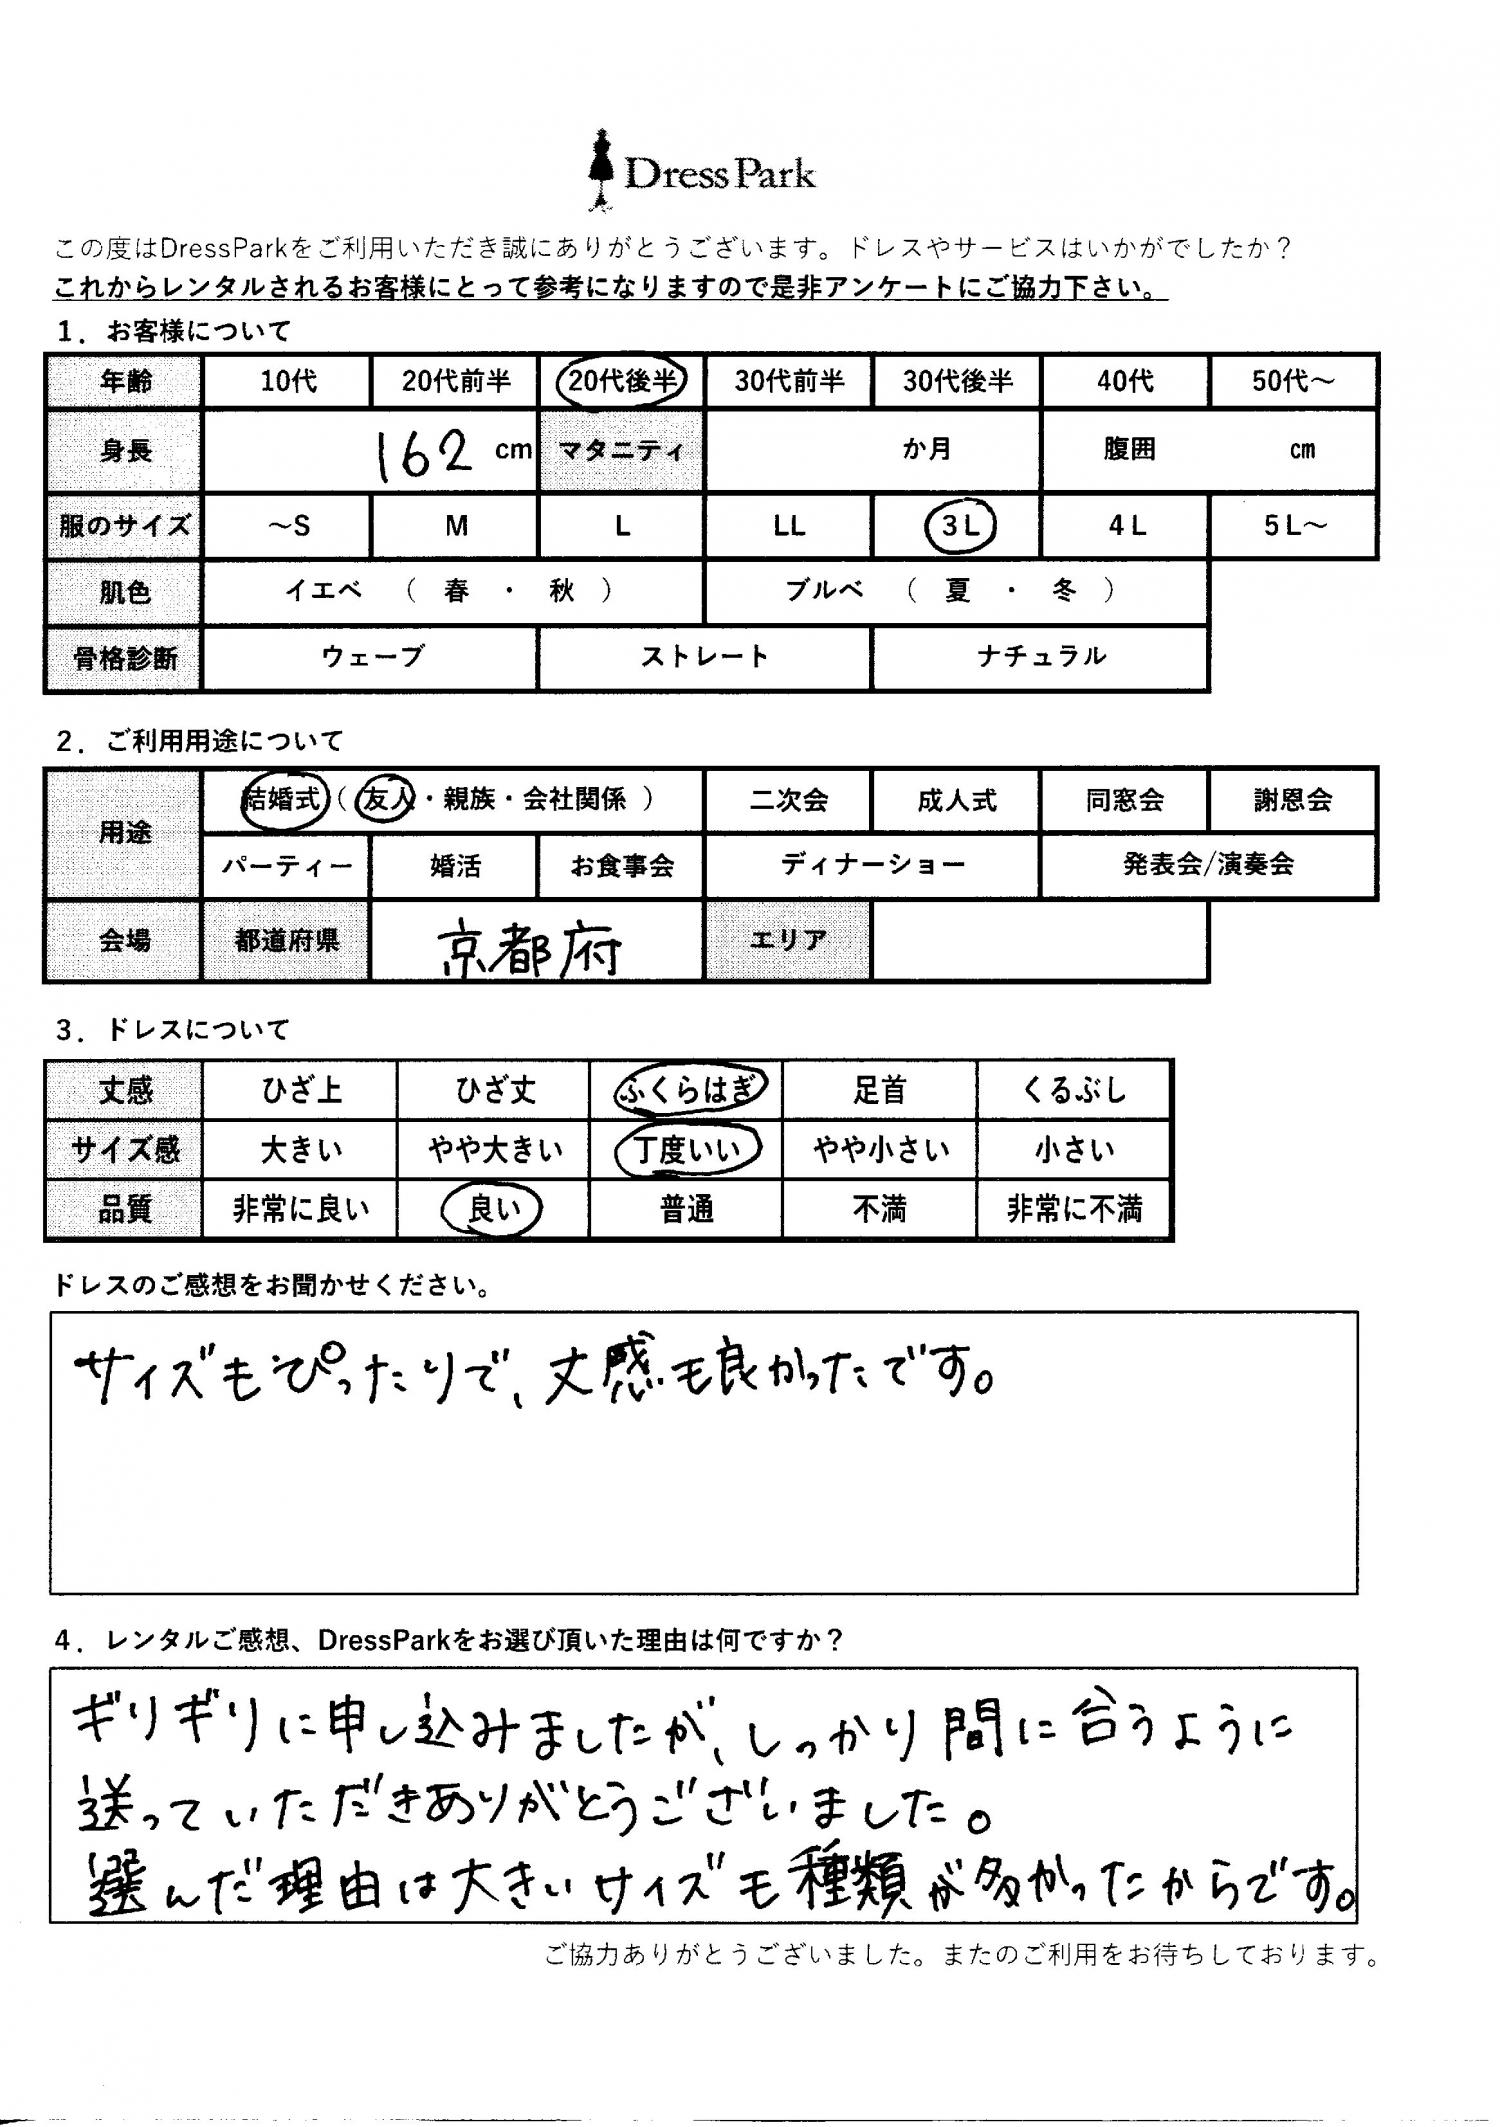 Dress Park
この度はDressParkをご利用いただき誠にありがとうございます。ドレスやサービスはいかがでしたか？
これからレンタルされるお客様にとって参考になりますので是非アンケートにご協力下さい。
1．お客様について
年齢 10代 20代前半 20代後半 30代前半 30代後半 40代 50代～
身長 162 cm マタニティ か月 腹囲 cm
服のサイズ ～S M L LL 3L 4L 5L～
肌色 イエベ （ 春 ・ 秋 ） ブルベ （ 夏 ・ 冬 ）
骨格診断 ウェーブ ストレート ナチュラル
2．ご利用用途について
用途 結婚式（ 友人・親族・会社関係 ） 二次会 成人式 同窓会 謝恩会
パーティー 婚活 お食事会 ディナーショー 発表会/演奏会
会場 都道府県 京都府 エリア
3．ドレスについて
丈感 ひざ上 ひざ丈 ふくらはぎ 足首 くるぶし
サイズ感 大きい やや大きい 丁度いい やや小さい 小さい
品質 非常に良い 良い 普通 不満 非常に不満
ドレスのご感想をお聞かせください。
サイズもぴったりで、丈感も良かったです。
4．レンタルご感想、DressParkをお選び頂いた理由は何ですか？
ギリギリに申し込みましたが、しっかり間に合うように
送っていただきありがとうございました。
選んだ理由は大きいサイズも種類が多かったからです。
ご協力ありがとうございました。またのご利用をお待ちしております。